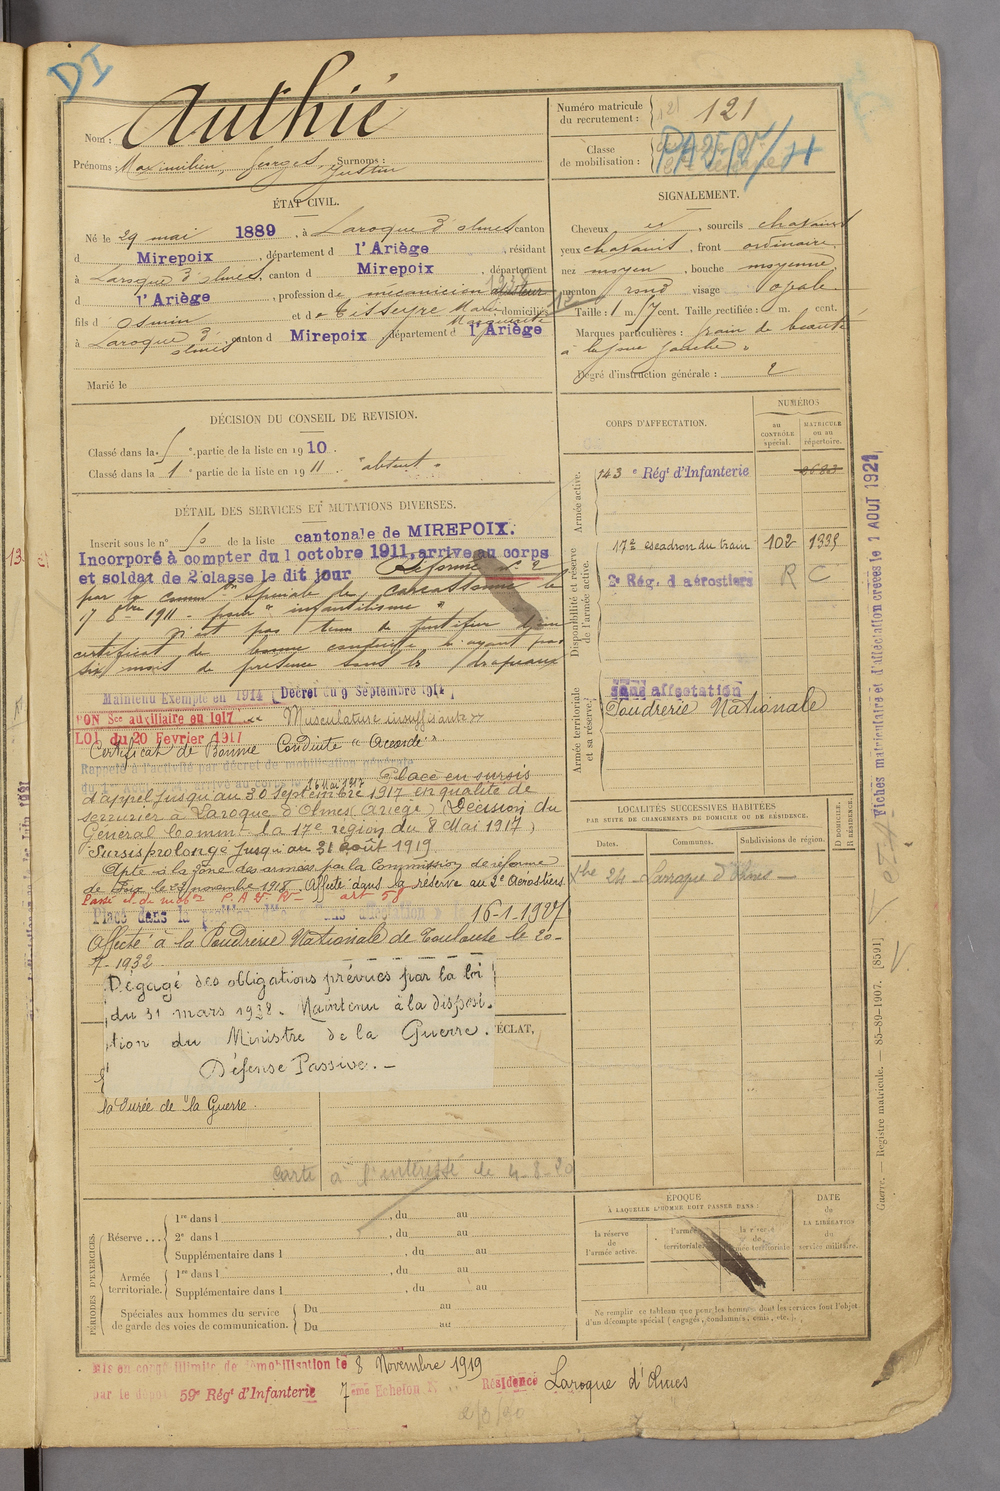 DI
Nom : Authié
Prénoms : Maximilien, Georges, Justin Surnoms :
Numéro matricule du recrutement : 121
Classe de mobilisation :
ÉTAT CIVIL.
Né le 29 mai 1889, à Laroque d'olmes canton
d Mirepoix, département d l'Ariège, résidant
à Laroque d'olmes, canton d Mirepoix, département
d l'Ariège, profession de mécanicien
fils d Osmin et de Tisseyre Marie Marguerite domiciliés
à Laroque d'olmes canton d Mirepoix département d l'Ariège
Marié le
SIGNALEMENT.
Cheveux, sourcils chatains
yeux chatains, front ordinaire
nez moyen, bouche moyenne
menton rond visage ovale
Taille : 1 m. 57 cent. Taille rectifiée : m. cent.
Marques particulières : grain de beauté
à la joue gauche
Degré d'instruction générale : 2
DÉCISION DU CONSEIL DE REVISION.
Classé dans la partie de la liste en 1910.
Classé dans la 1 partie de la liste en 1911. "absent"
DÉTAIL DES SERVICES ET MUTATIONS DIVERSES.
Inscrit sous le n° de la liste cantonale de MIREPOIX.
Incorporé à compter du 1 octobre 1911, arrive au corps
et soldat de 2e classe le dit jour Réformé n° 2
par la comm on spéciale de Carcassonne le
7 8bre 1911 pour "infantilisme"
N'est pas tenu de justifier d'un
certificat de bonne conduite n'ayant pas
six mois de présence sous les drapeaux
Maintenu Exempté en 1914 (Décret du 9 Septembre 1914)
BON Sce auxiliaire en 1917 "Musculature insuffisante"
LOI du 20 Février 1917
Certificat de Bonne Conduite "Accordé"
Rappelé à l'activité par décret de mobilisation générale
arrivé au corps le 16 Mai 1917 Placé en sursis
d'appel jusqu'au 30 septembre 1917 en qualité de
serrurier à Laroque d'Olmes (Ariège) (Décision du
Général Commt la 17e région du 8 Mai 1917)
Sursis prolongé jusqu'au 31 août 1919
Apte à la zone des armées par la Commission de réforme
de Foix le 27 novembre 1918 - Affecté dans la réserve au 2e Aérostiers
art 58
Placé dans la 16-1-1927
Affecté à la Poudrerie Nationale de Toulouse le 20-
7-1932
Dégagé des obligations prévues par la loi
du 31 mars 1928. Maintenu à la disposi-
tion du Ministre de la Guerre.
Défense Passive.-
ÉCLAT,
la Durée de la Guerre.
carte à l'intéressé le 4-8-20
CORPS D'AFFECTATION.
NUMÉROS
AU CONTRÔLE spécial.
MATRICULE ou au répertoire.
Armée active.
143e Régt d'Infanterie
Disponibilité et réserve de l'armée active.
17e escadron du train 102 1335
2e Rég. d'aérostiers R C
Armée territoriale et sa réserve.
sans affectation
Poudrerie Nationale
LOCALITÉS SUCCESSIVES HABITÉES
PAR SUITE DE CHANGEMENTS DE DOMICILE OU DE RÉSIDENCE.
Dates. Communes. Subdivisions de région. D DOMICILE. R RÉSIDENCE.
Xbre 24 - Laroque d'Olmes -
Fiches matriculaire et d'affectation créées le 1 AOUT 1921
Guerre. — Registre matricule. — 85-89-1907. [8591]
PÉRIODES D'EXERCICES.
Réserve ...
1re dans l , du au
2e dans l , du au
Supplémentaire dans l , du au
Armée territoriale.
1re dans l , du au
Supplémentaire dans l , du au
Spéciales aux hommes du service de garde des voies de communication.
Du au
Du au
ÉPOQUE
À LAQUELLE L'HOMME DOIT PASSER DANS :
la réserve de l'armée active.
l'armée territoriale.
la réserve de l'armée territoriale
DATE de LA LIBÉRATION du service militaire.
Ne remplir ce tableau que pour les hommes dont les services font l'objet
d'un décompte spécial (engagés, condamnés, omis, etc.).
Mis en congé illimité de démobilisation le 8 Novembre 1919
par le dépôt 59e Régt d'Infanterie 7ème Echelon Résidence Laroque d'Olmes